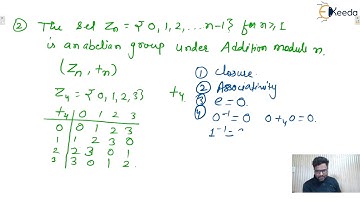 Ekeeda
② The set Zn = {0, 1, 2, ... n-1} for n ≥ 1
is an abelian group under Addition modulo n.
(Zn, +n)
Z4 = {0, 1, 2, 3} +4
+4 0 1 2 3
0 0 1 2 3
1 1 2 3 0
2 2 3 0 1
3 3 0 1 2
① Closure.
② Associativity
③ e = 0.
④ 0⁻¹ = 0 0 +4 0 = 0.
1⁻¹ =